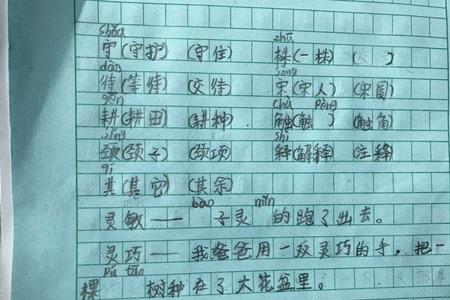 shǒu zhū
守(守护)(守住) 株(一株)( )
dān sòng
待(等待)(交待) 宋(宋人)(宋国)
gēn chù pèng
耕(耕田)(耕种) 触(触 )(触角)
jǐng shì
颈(颈子)(颈项) 释(解释)(注释)
qí
其(其它)(其余)
bāo mǐn
灵敏——子灵 的跑了出去。
灵巧——我爸爸用一双灵巧的手,把一
棵 树种在了大花盆里。